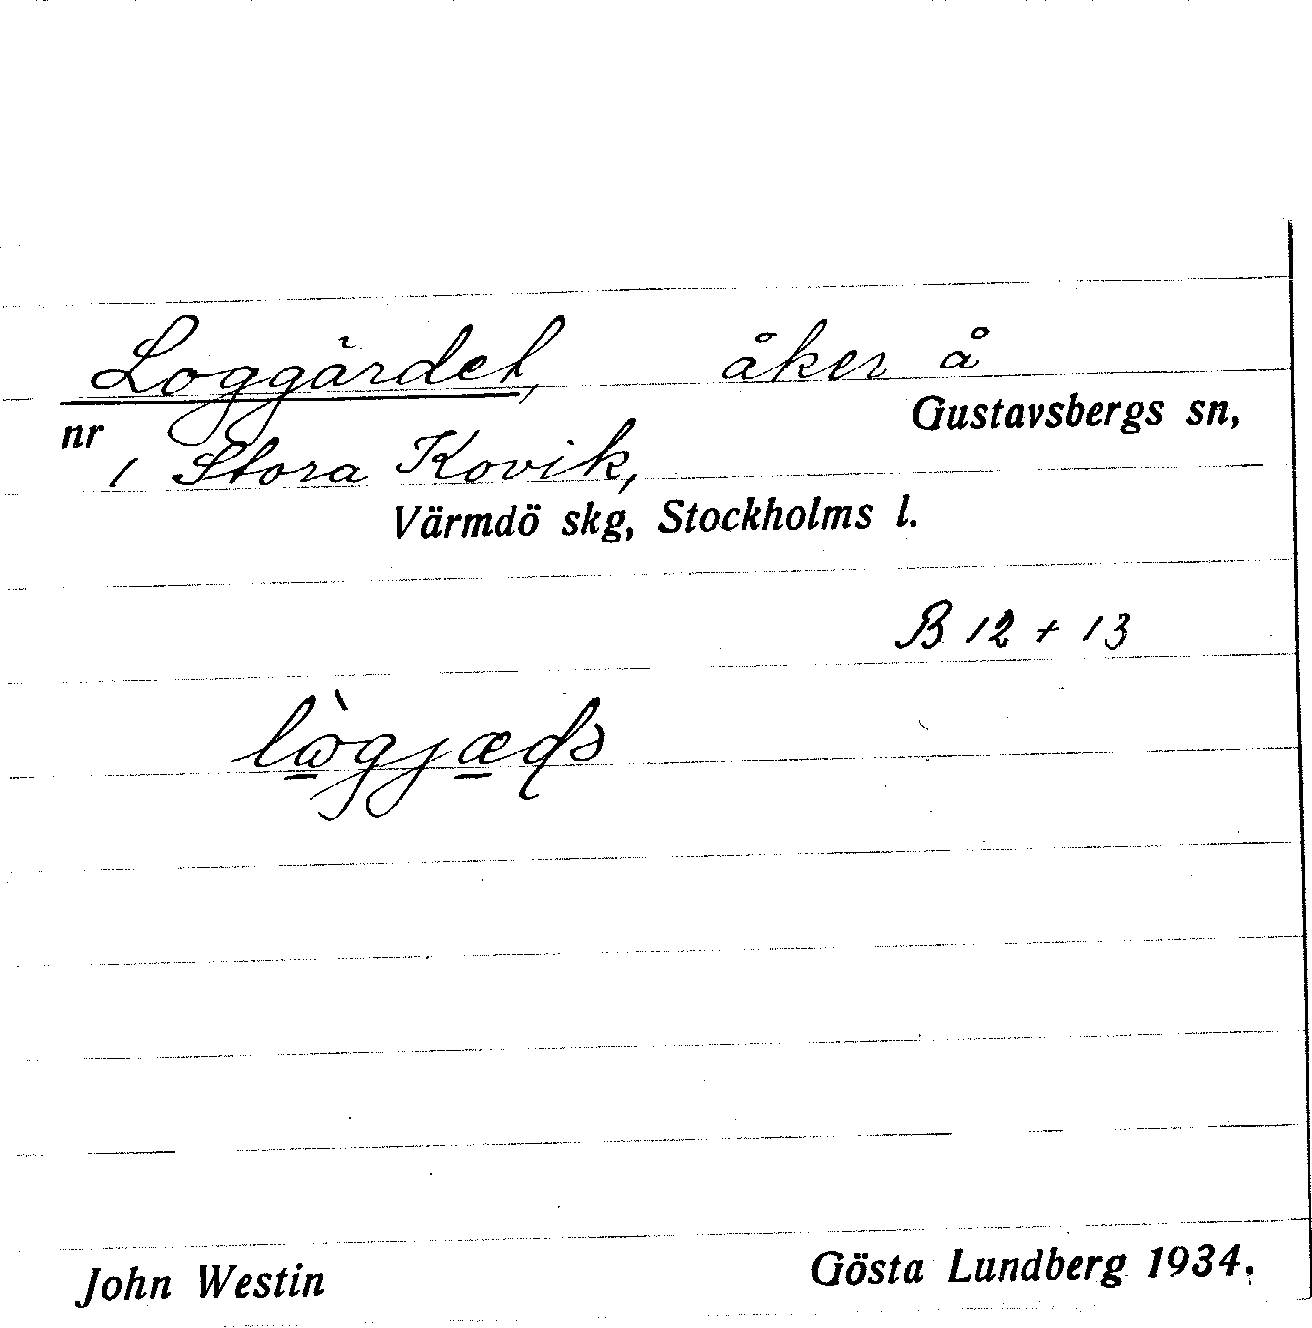 Loggärdet, åker å
Gustavsbergs sn,
nr 1 Stora Kovik,
Värmdö skg, Stockholms l.
B 12 + 13
John Westin
Gösta Lundberg 1934.